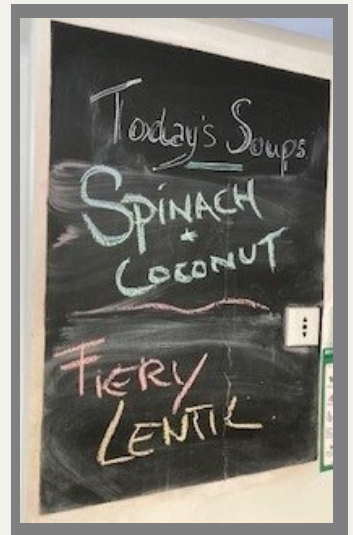 Today's Soups
SPINACH
+
COCONUT
FIERY
LENTIL